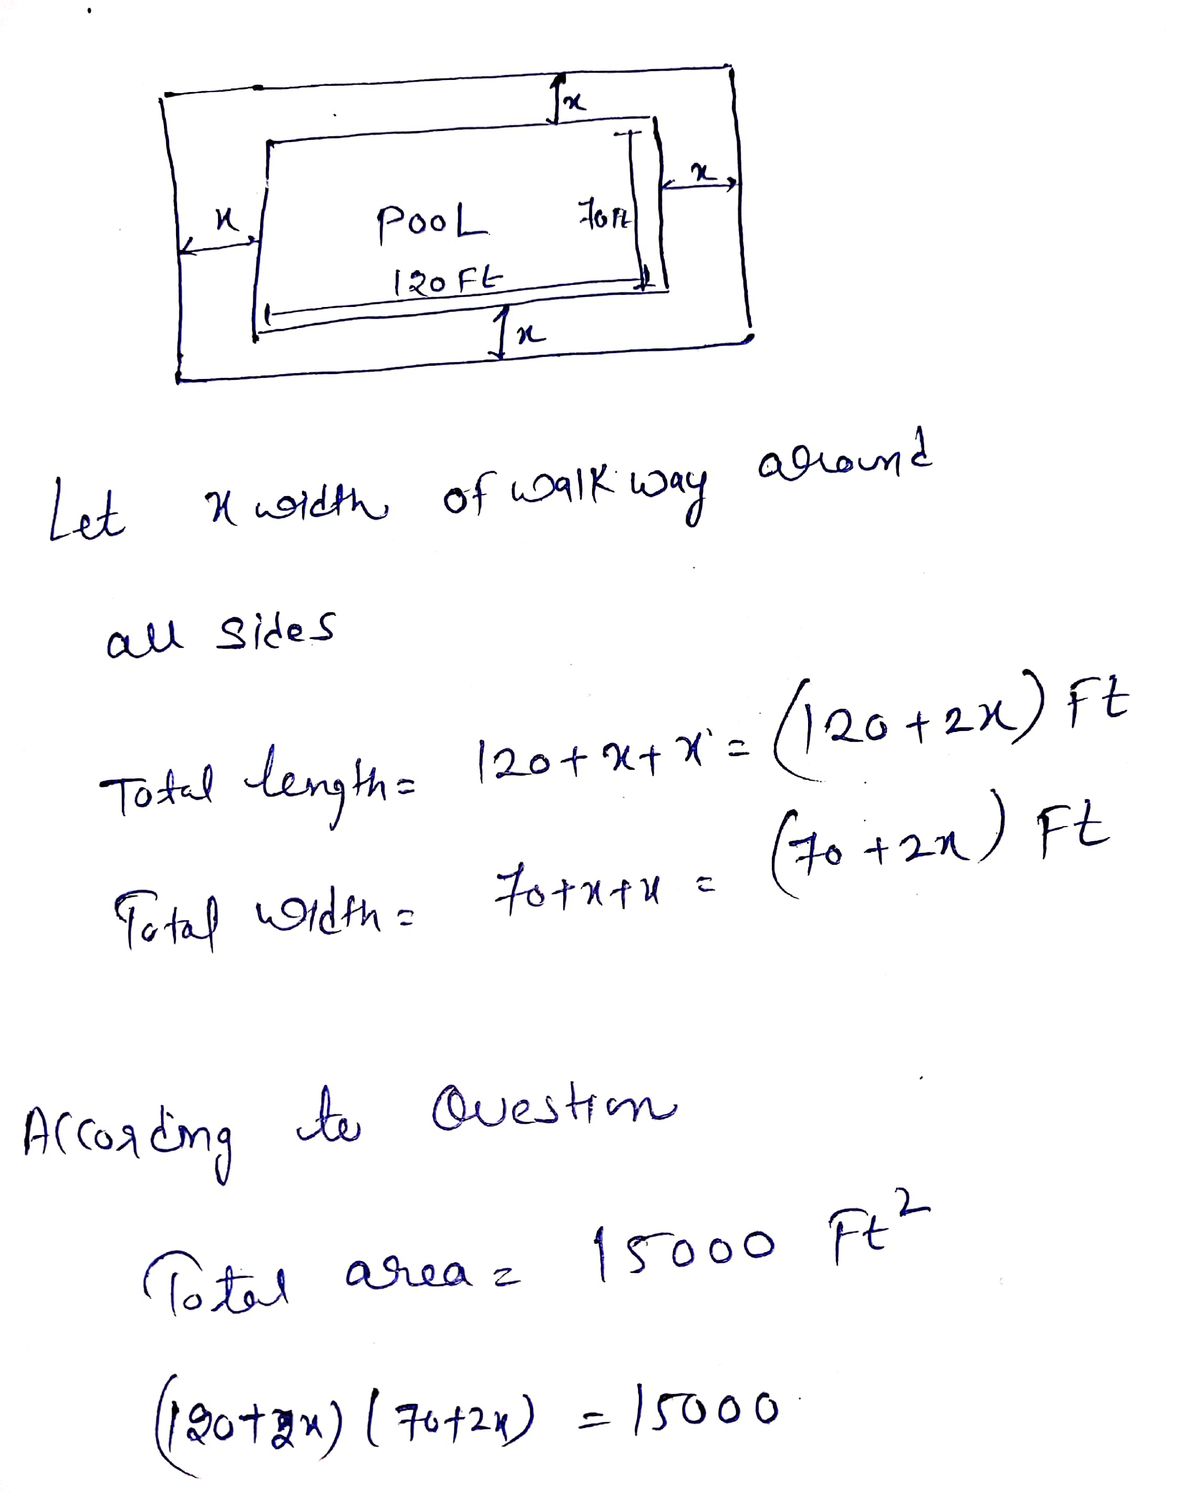 x
x
x
POOL
70 Ft
120 Ft
x
Let x width of walk way around
all sides
Total length = 120 + x + x = (120 + 2x) Ft
Total width = 70 + x + x = (70 + 2x) Ft
According to Question
Total area = 15000 Ft²
(120 + 2x) (70 + 2x) = 15000